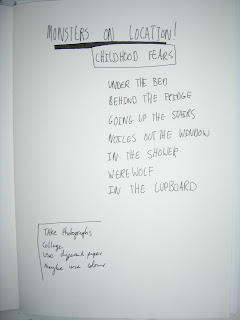 MONSTERS ON LOCATION!
CHILDHOOD FEARS
UNDER THE BED
BEHIND THE FRIDGE
GOING UP THE STAIRS
NOICES OUT THE WINDOW
IN THE SHOWER
WEREWOLF
IN THE CUPBOARD
Take Photographs
Collage
Use different paper
Maybe use colour